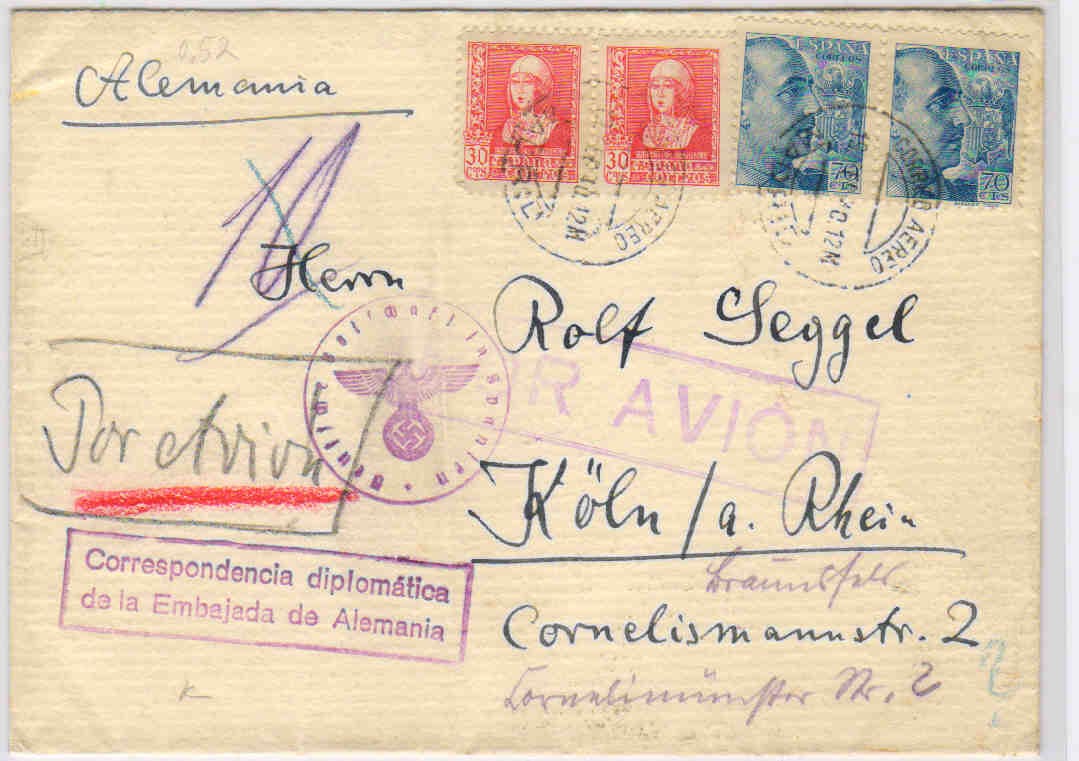 0,52
Alemania
30 CTS
30 CTS
ESPAÑA
CORREOS
70 CTS
ESPAÑA
CORREOS
70 CTS
CORREO AEREO
12M
CORREO AEREO
12M
19
Herrn
Rolf Seggel
Deutsche Botschaft in Spanien
POR AVION
Por Avion
Köln / a. Rhein
Braunsfeld
Correspondencia diplomática
de la Embajada de Alemania
Cornelismannstr. 2
Cornelimünster Str. 2